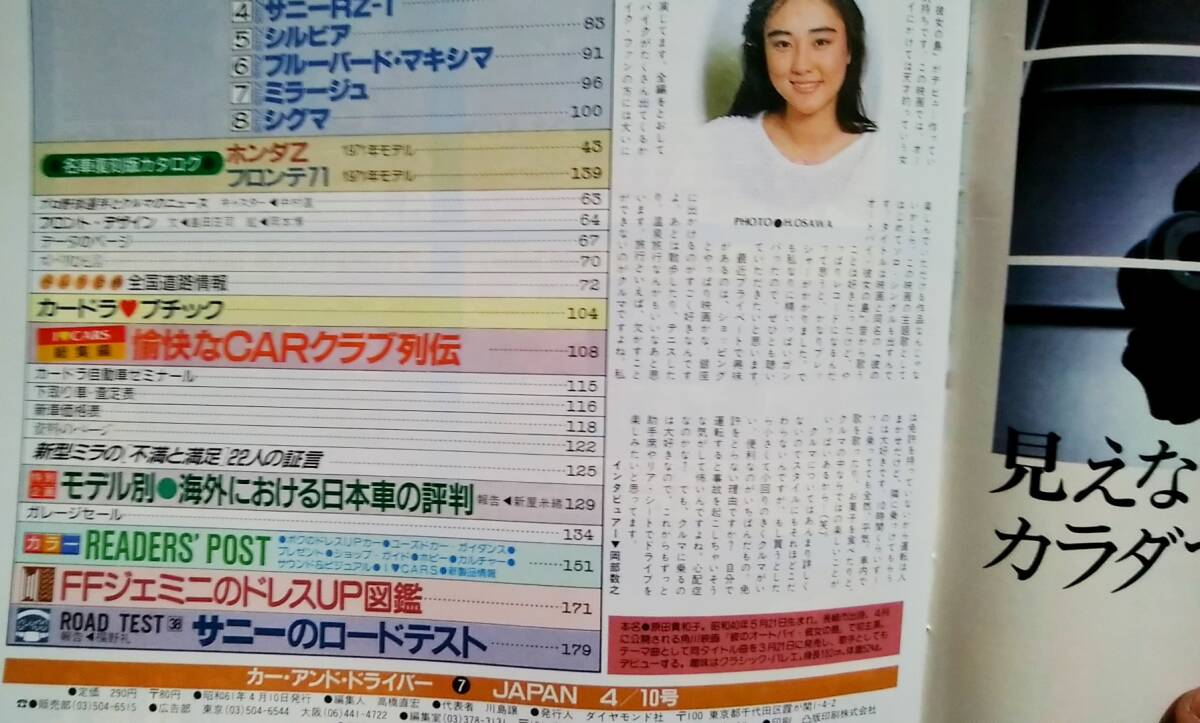 4 サニーRZ-1 83
5 シルビア
6 ブルーバード・マキシマ 91
7 ミラージュ 96
8 シグマ 100
名車復刻版カタログ ホンダZ 1971年モデル 43
フロンテ71 1971年モデル 139
63
フロント・デザイン 64
データのページ 67
70
全国道路情報 72
カードラ♥プチック 104
I♥CARS 総集編 愉快なCARクラブ列伝 108
カードラ自動車セミナール 115
下取り車・査定表 116
新車価格表 118
資料のページ 122
新型ミラの「不満と満足」22人の証言 125
モデル別●海外における日本車の評判 報告◀新屋米緒 129
ガレージセール 134
カラー READERS' POST 151
●ボクのドレスUPカー●ユーズドカー ガイダンス●
プレゼント●ショップ・ガイド●ホビー●カルチャー●
サウンド&ビジュアル●I♥CARS●新製品情報
FFジェミニのドレスUP図鑑 171
ROAD TEST 38 サニーのロードテスト 179
カー・アンド・ドライバー 7 JAPAN 4/10号
●定価 290円 〒80円 ●昭和61年4月10日発行 ●編集人 高橋直宏 ●代表者 川島譲 ●発行人 ダイヤモンド社 〒100 東京都千代田区霞が関1-4-2
☎●販売部(03)504-6515 ●広告部 東京(03)504-6644 大阪(06)441-4722 ●編集室(03)378-3131 ●印刷 凸版印刷株式会社
演じてます。全編をとおして
バイクがたくさん出てくるか
イク・ファンの方には大いに
PHOTO●H.OSAWA
楽しんでいただける作品なんじゃな
いかしら。この映画の主題歌として
はじめてソロ・シングルも出すんで
す。タイトルは映画と同名の『彼の
オートバイ、彼女の島』。昔から歌う
ことは好きでしたけど、や
っぱりレコードになるんだ
って思うと、かなりプレッ
シャーがかかりました。で
も私なりに精いっぱいガン
バったので、ぜひとも聴い
ていただきたいと思います。
最近プライベートで興味
があるのは、ショッピング
とやっぱり映画かな。銀座
に出かけるのがすごく好きなんです
よ。あとは散歩したり、テニスした
り、温泉旅行なんかもいいなあと思
います。旅行といえば、欠かすこと
ができないのがクルマですよね。私
は免許を持っていないから運転は人
まかせだけど、隣に乗ってもらう
のは大好きです。10時間くらいず
っと乗ってても全然、平気。車内で
歌を歌ったり、お菓子を食べたり、
クルマの中ならではの楽しいことが
いっぱいあるから(笑)。
クルマについてはあんまり詳しく
ないのでスタイルにもそれほどこだ
わらないんですが、もし買うとした
ら小さくて小回りのきくクルマがい
い。便利なのがいちばんだもの。免
許をとらない理由ですか?自分で
運転すると事故を起こしちゃいそう
な気がして怖いんですよね。心配症
なのかな?でも、クルマに乗るの
は大好きなので、これからもずっと
助手席やリア・シートでドライブを
楽しみたいと思ってます。
インタビュアー▼岡部数之
本名●原田貴和子。昭和40年5月21日生まれ。長崎市出身。4月
に公開される角川映画「彼のオートバイ・彼女の島」で初主演。
テーマ曲として同タイトル曲を3月21日に発売し、歌手としても
デビューする。趣味はクラシック・バレエ。身長162cm、体重52kg。
見えな
カラダ